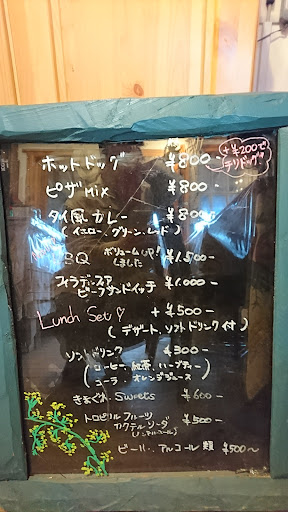 ホットドッグ ¥800-
+¥200で
チリドッグ
ピザMix ¥800-
タイ風カレー ¥800-
(イエロー、グリーン、レッド)
BQ ボリュームUP!
しました ¥1.500-
フィラデルフィア
ビーフサンドイッチ ¥1.000-
Lunch Set♡ +¥500-
(デザート、ソフトドリンク付)
ソフトドリンク ¥300-
(コーヒー、紅茶、ハーブティー
コーラ・オレンジジュース)
きまぐれ Sweets ¥600-
トロピカルフルーツ
カクテルソーダ ¥500-
(ノンアルコール)
ビール・アルコール類 ¥500〜